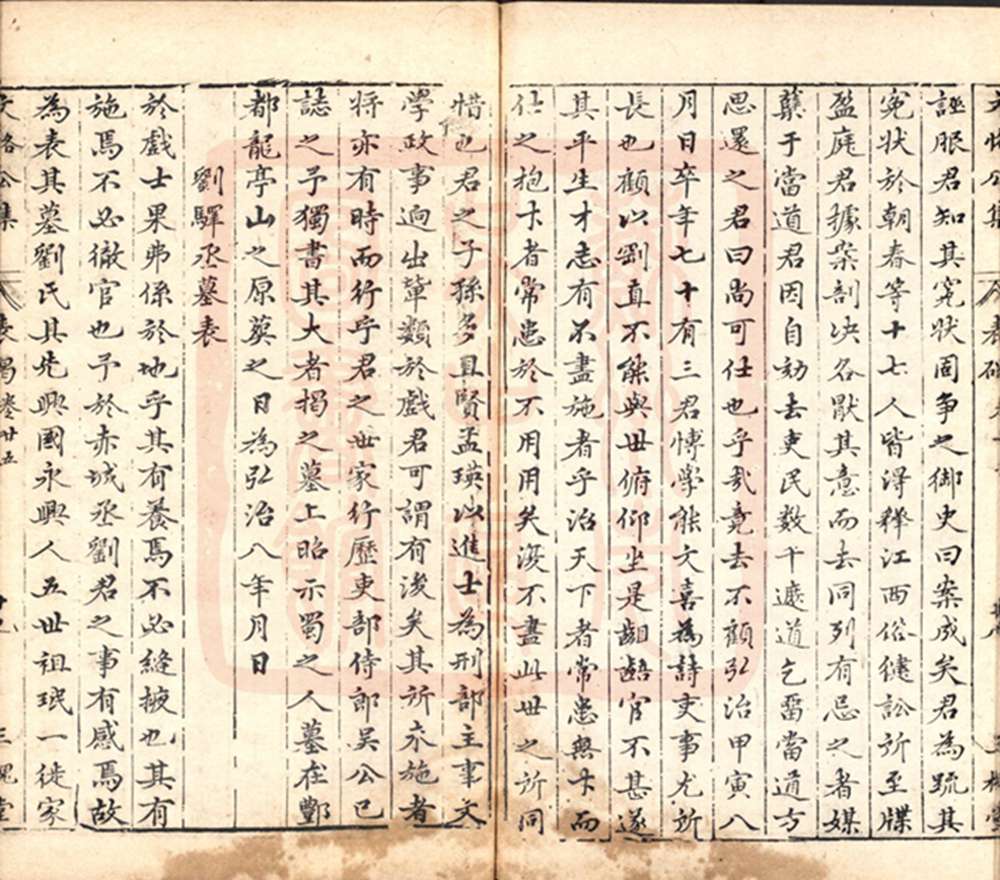 誣服君知其冤狀固爭之御史曰案成矣君為疏其
冤狀於朝春等十七人皆得釋江西俗健訟所至牒
盈庭君據案剖决各厭其意而去同列有忌之者媒
糵于當道君因自劾去吏民数千遮道乞畱當道方
思還之君曰尚可仕也乎哉竟去不顧弘治甲寅八
月日卒年七十有三君愽學能文喜為詩吏事尤所
長也顧以剛直不能與世俯仰坐是齟齬官不甚遂
其平生才志有不盡施者乎治天下者常患無才而
仕之抱才者常患於不用用矣復不盡此世之所同
惜也君之子孫多且賢孟瑛以進士為刑部主事文
學政事逈出輩類於戲君可謂有後矣其所未施者
将亦有時而行乎君之世家行歷吏部侍郎吳公已
誌之予獨書其大者揭之墓上昭示蜀之人墓在酆
都龍亭山之原葬之日為弘治八年月日
劉驛丞墓表
於戲士果弗係於地乎其有養焉不必縫掖也其有
施焉不必徹官也予於赤城丞劉君之事有感焉故
為表其墓劉氏其先興國永興人五世祖珉一徙家